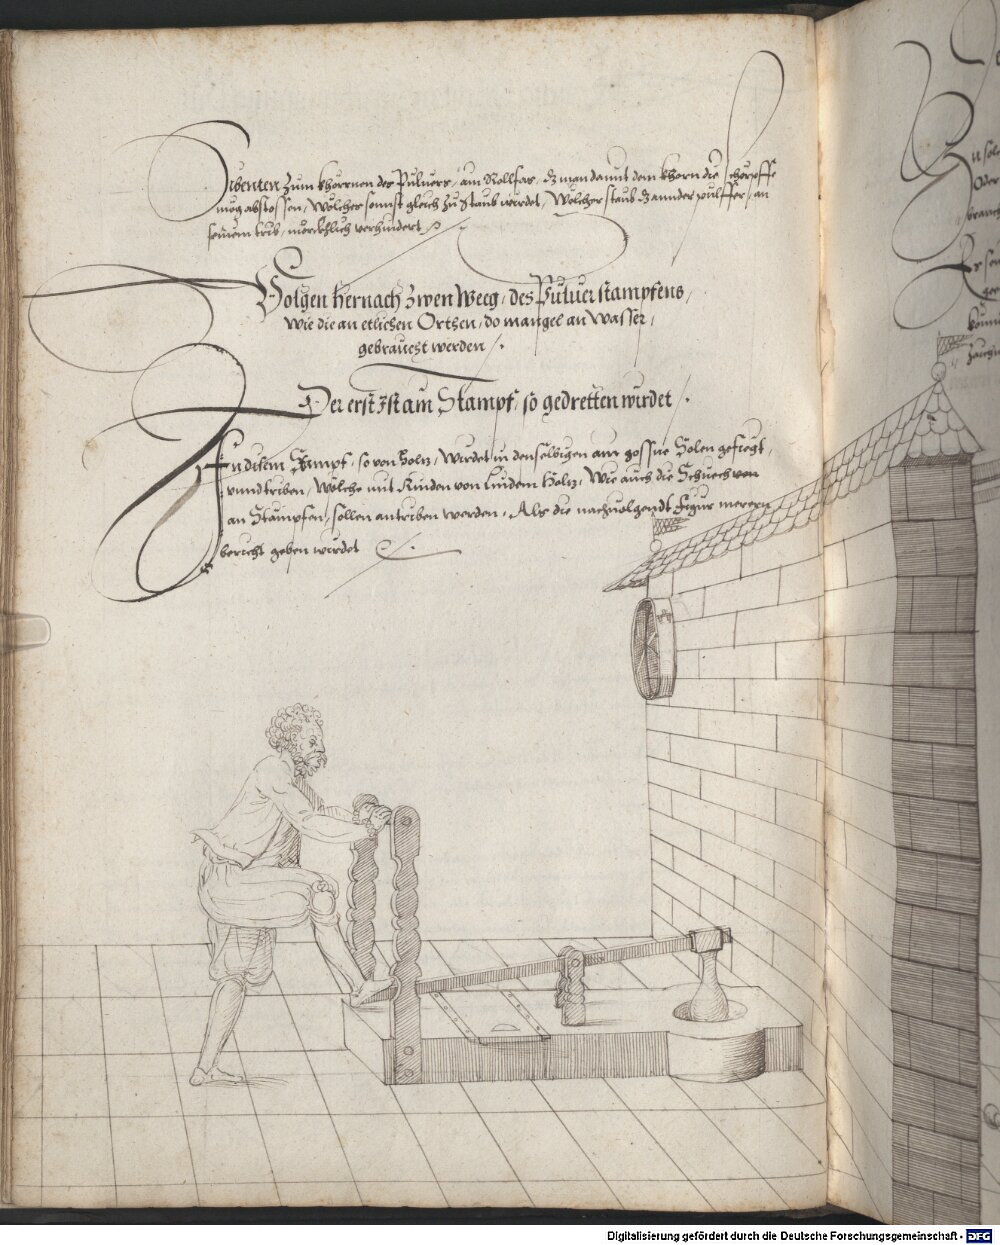 Sibenten zum khörnnen des Puluers, am Rollfas, dz man damit dem khorn die schörpffe
mög abstossen, Wölches sonnst gleich zu Staub wirdet, Wölcher staub dz annder pulffer, an
seinem trib, mörckhlich verhindert
Volgen hernach zwen Weeg, des Puluerstampfens,
Wie die an etlichen Orthen, do mangel an Wasser,
gebraucht werden
Der erst Ist ain Stampf, so gedretten wirdet
In disem Stampf, so von Holtz, Wirdet in denselbigen ain gossne Solen gefiegt,
vnnd triben, Wölche mit Rinden von lindem Holtz, Wie auch die Schuech von
an Stampfen, sollen antriben werden, Als die nachuolgendt Figur merern
bericht geben wirdet
Zu sol
Oder
brauch
Er sen
Digitalisierung gefördert durch die Deutsche Forschungsgemeinschaft - DFG